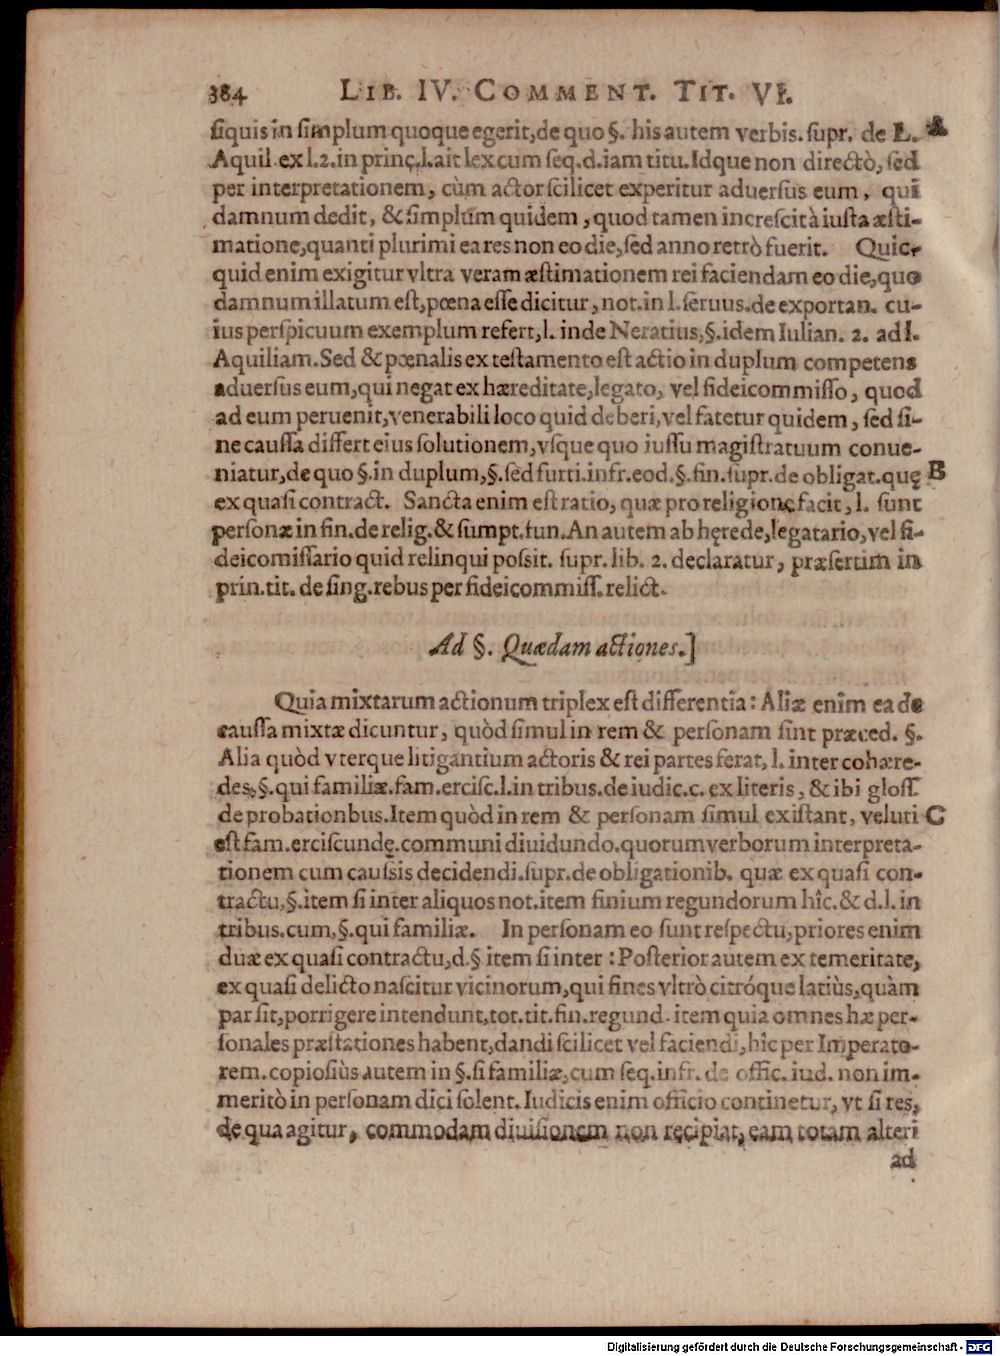 384 LIB. IV. COMMENT. TIT. VI.
siquis in simplum quoque egerit, de quo §. his autem verbis. supr. de L. A
Aquil. ex l. 2. in princ. l. ait lex cum seq. d. iam titu. Idque non directò, sed
per interpretationem, cùm actor scilicet experitur aduersus eum, qui
damnum dedit, & simplum quidem, quod tamen increscit à iusta æsti-
matione, quanti plurimi ea res non eo die, sed anno retrò fuerit. Quic-
quid enim exigitur vltra veram æstimationem rei faciendam eo die, quo
damnum illatum est, pœna esse dicitur, not. in l. seruus. de exportan. cu-
ius perspicuum exemplum refert, l. inde Neratius, §. idem Iulian. 2. ad l.
Aquiliam. Sed & pœnalis ex testamento est actio in duplum competens
aduersus eum, qui negat ex hæreditate, legato, vel fideicommisso, quod
ad eum peruenit, venerabili loco quid deberi, vel fatetur quidem, sed si-
ne caussa differt eius solutionem, vsque quo iussu magistratuum conue-
niatur, de quo §. in duplum, §. sed furti. infr. eod. §. fin. supr. de obligat. quę B
ex quasi contract. Sancta enim est ratio, quæ pro religione facit, l. sunt
personæ in fin. de relig. & sumpt. fun. An autem ab hęrede, legatario, vel fi-
deicomissario quid relinqui possit. supr. lib. 2. declaratur, præsertim in
prin. tit. de sing. rebus per fideicommiss. relict.
Ad §. Quædam actiones.]
Quia mixtarum actionum triplex est differentia: Aliæ enim ea de
caussa mixtæ dicuntur, quòd simul in rem & personam sint præced. §.
Alia quòd vterque litigantium actoris & rei partes ferat, l. inter cohære-
des, §. qui familiæ. fam. ercisc. l. in tribus. de iudic. c. ex literis, & ibi gloss.
de probationbus. Item quòd in rem & personam simul existant, veluti C
est fam. erciscundę. communi diuidundo. quorum verborum interpreta-
tionem cum caussis decidendi. supr. de obligationib. quæ ex quasi con-
tractu, §. item si inter aliquos not. item finium regundorum hîc. & d. l. in
tribus. cum, §. qui familiæ. In personam eo sunt respectu, priores enim
duæ ex quasi contractu, d. § item si inter: Posterior autem ex temeritate,
ex quasi delicto nascitur vicinorum, qui fines vltrò citróque latiùs, quàm
par sit, porrigere intendunt, tot. tit. fin. regund. item quia omnes hæ per-
sonales præstationes habent, dandi scilicet vel faciendi, hîc per Imperato-
rem. copiosiùs autem in §. si familiæ, cum seq. infr. de offic. iud. non im-
meritò in personam dici solent. Iudicis enim officio continetur, vt si res,
de qua agitur, commodam diuisionem non recipiat, eam totam alteri
ad
Digitalisierung gefördert durch die Deutsche Forschungsgemeinschaft - DFG